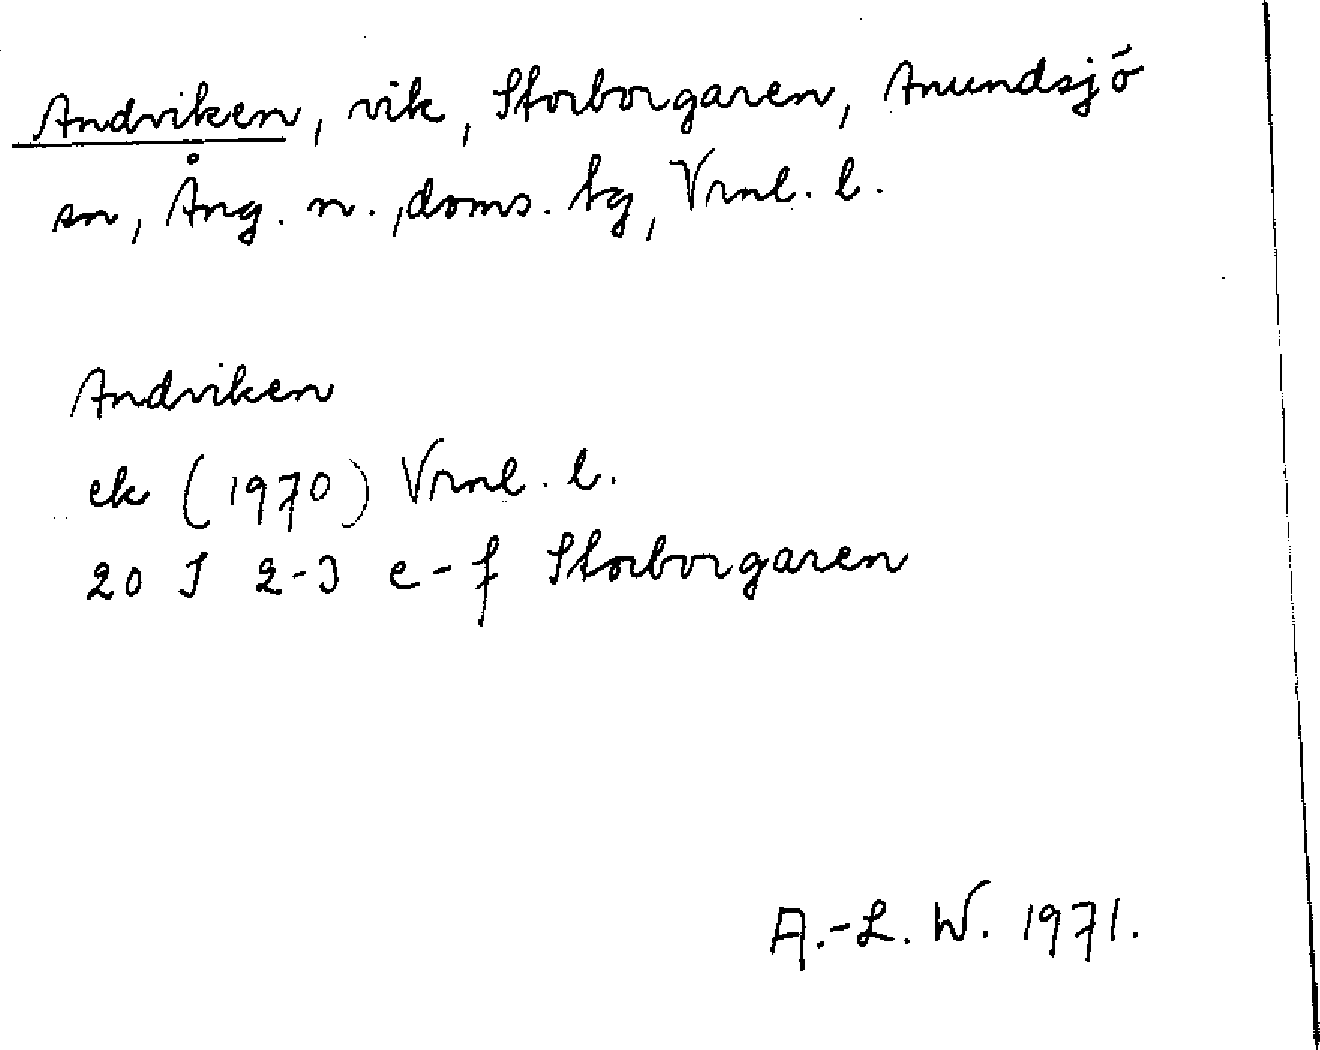 Andviken, vik, Storborgaren, Anundsjö
sn, Ång. n., doms. tg, Vrml. l.
Andviken
ek (1970) Vrml. l.
20 I 2-3 e-f Storborgaren
A.-L. W. 1971.